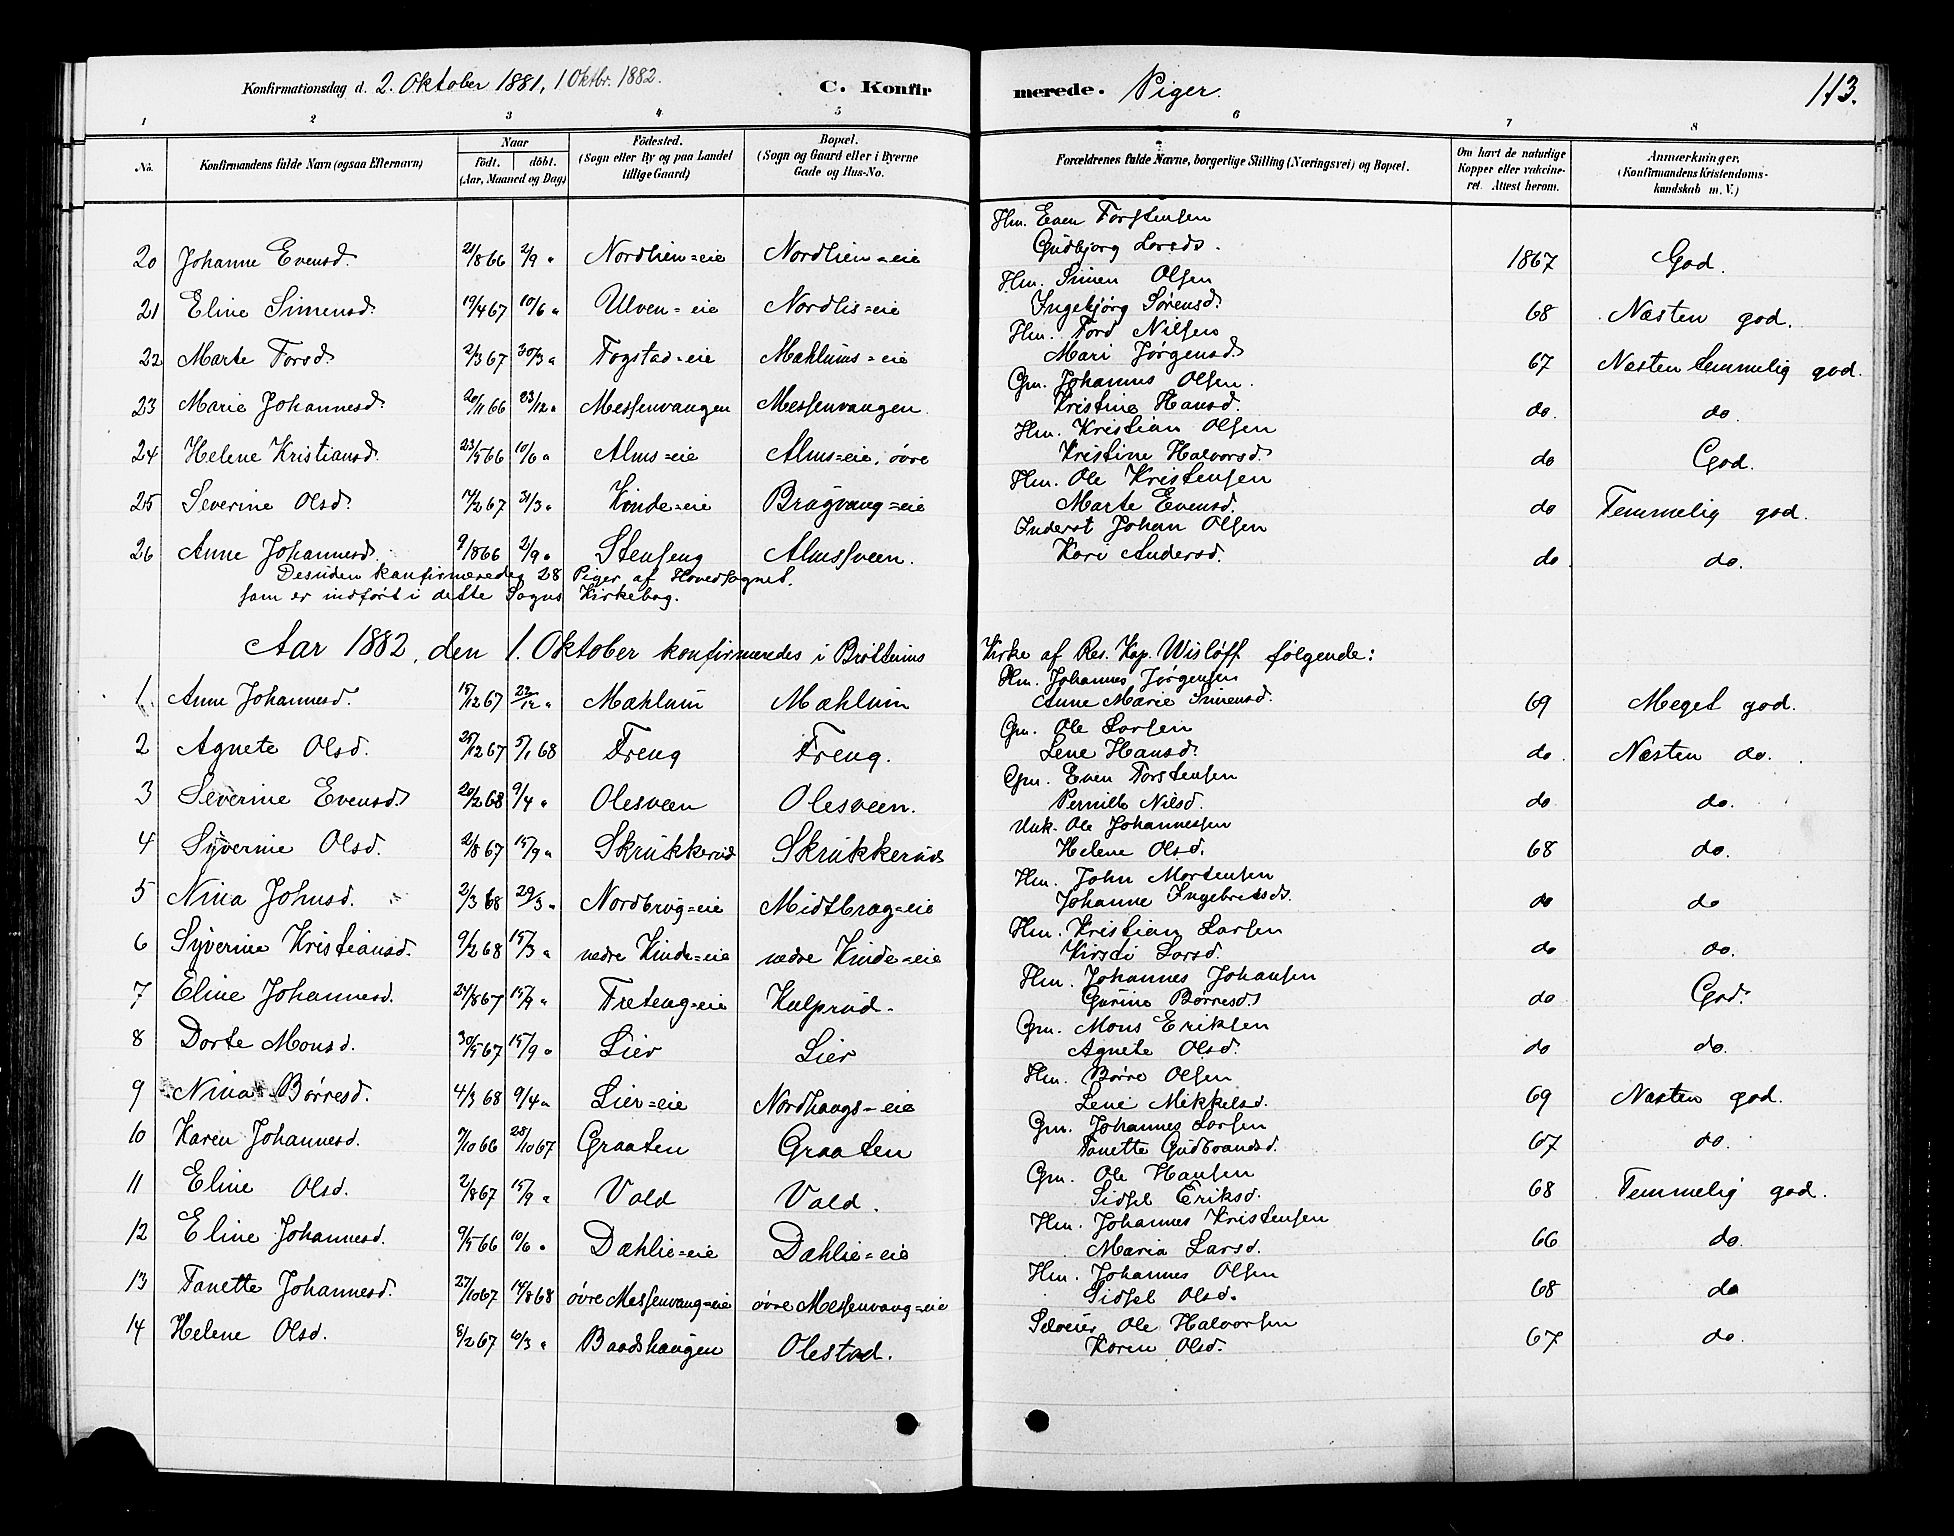 Konfirmationsdag d. 2. Oktober 1881, 1 Oktbr. 1882. C. Konfirmerede. Piger. 113.
1 2 3 4 5 6 7 8
No. Konfirmandens fulde Navn (ogsaa Efternavn) Naar födt. döbt. (Aar, Maaned og Dag) Födested. (Sogn eller By og paa Landet tillige Gaard) Bopæl. (Sogn og Gaard eller i Byerne Gade og Hus-No. Forældrenes fulde Navne, borgerlige Stilling (Næringsvei) og Bopæl. Om havt de naturlige Kopper eller vakcineret. Attest herom. Anmærkninger. (Konfirmandens Kristendomskundskab m. V.)
20 Johanne Evensd. 21/8 66 2/9 " Nordlien=eie Nordlien=eie Hm. Even Torstensen Gudbjorg Larsd. 1867 God.
21 Eline Simensd. 19/4 67 10/6 " Ulven=eie Nordlis=eie Hm. Simen Olsen Ingebjørg Sørensd. 68 Næsten god.
22 Marte Torsd. 2/3 67 30/3 " Fogstad=eie Mæhlums=eie Hm. Tord Nilsen Mari Jørgensd. 67 Næsten temmelig god.
23 Marie Johannesd. 20/11 66 23/12 " Messenvangen Messenvangen. Gm. Johannes Olsen. Kristine Hansd. do. do.
24 Helene Kristiansd. 23/5 66 10/6 " Alms=eie Alms=eie, øvre Hm. Kristian Olsen Kristine Halvorsd. do God.
25 Severine Olsd. 14/2 67 31/3 " Kinde=eie Bragvang=eie Hm. Ole Kristensen Marte Evensd. do Temmelig god.
26 Anne Johannesd. 9/8 66 2/9 " Stenseng Almssveen. Inderst Johan Olsen Kari Andersd. do. do.
Desuden konfirmeredes 28 Piger af Hovedsognet.
som er indført i dette Sogns Kirkebog.
Aar 1882, den 1. Oktober konfirmeredes i Brøttums Kirke af Res. Kap. Wisløff følgende:
1. Anne Johannesd. 15/12 67 22/12 " Mæhlum Mæhlum Hm. Johannes Jørgensen Anne Marie Simensd. 69 Meget god.
2 Agnete Olsd. 25/12 67 5/1 68 Freng Freng. Gm. Ole Larsen Lene Hansd. do. Næsten do.
3 Severine Evensd. 20/2 68 9/4 " Olesveen Olesveen. Gm. Even Torstensen Pernille Nilsd. do do.
4 Syverine Olsd. 2/8 67 15/9 " Skrukkerud Skrukkerud Unk. Ole Johannessen Helene Olsd. 68 do.
5 Nina Johnsd. 2/3 68 29/3 " Nordbrag=eie Midtbrag=eie Hm. John Mortensen Johanne Ingebretsd. do do
6 Syverine Kristiansd. 9/2 68 15/3 " nedre Kinde=eie nedre Kinde=eie Hm. Kristian Larsen Kirsti Larsd. do do.
7 Eline Johannesd. 24/8 67 15/9 " Freteng=eie Kulprud. Hm. Johannes Johansen Gurine Børresd. do God.
8 Dorte Monsd. 30/5 67 15/9 " Lier Lier Gm. Mons Eriksen Agnete Olsd. do do.
9 Nina Børresd. 4/3 68 9/4 " Lier=eie Nordhaugs=eie Hm. Børre Olsen Lene Mikkelsd. 69 Næsten god.
10 Karen Johannesd. 7/10 66 28/10 67 Graaten Graaten Gm. Johannes Larsen Tanette Gudbrandsd. 67 do.
11 Eline Olsd. 2/8 67 15/9 " Vold Vold. Gm. Ole Hansen Sidsel Eriksd. 68 Temmelig god.
12 Eline Johannesd. 9/5 66 10/6 " Dæhlie=eie Dæhlie=eie Hm. Johannes Kristensen Maria Larsd. 66 do.
13 Tanette Johannesd. 27/10 67 14/8 68 øvre Messenvang=eie øvre Messenvang=eie Hm. Johannes Olsen Sidsel Olsd. 68 do
14 Helene Olsd. 8/2 67 10/3 " Baadshaugen Olestad. Selveier Ole Halvorsen Karen Olsd. 67 do.